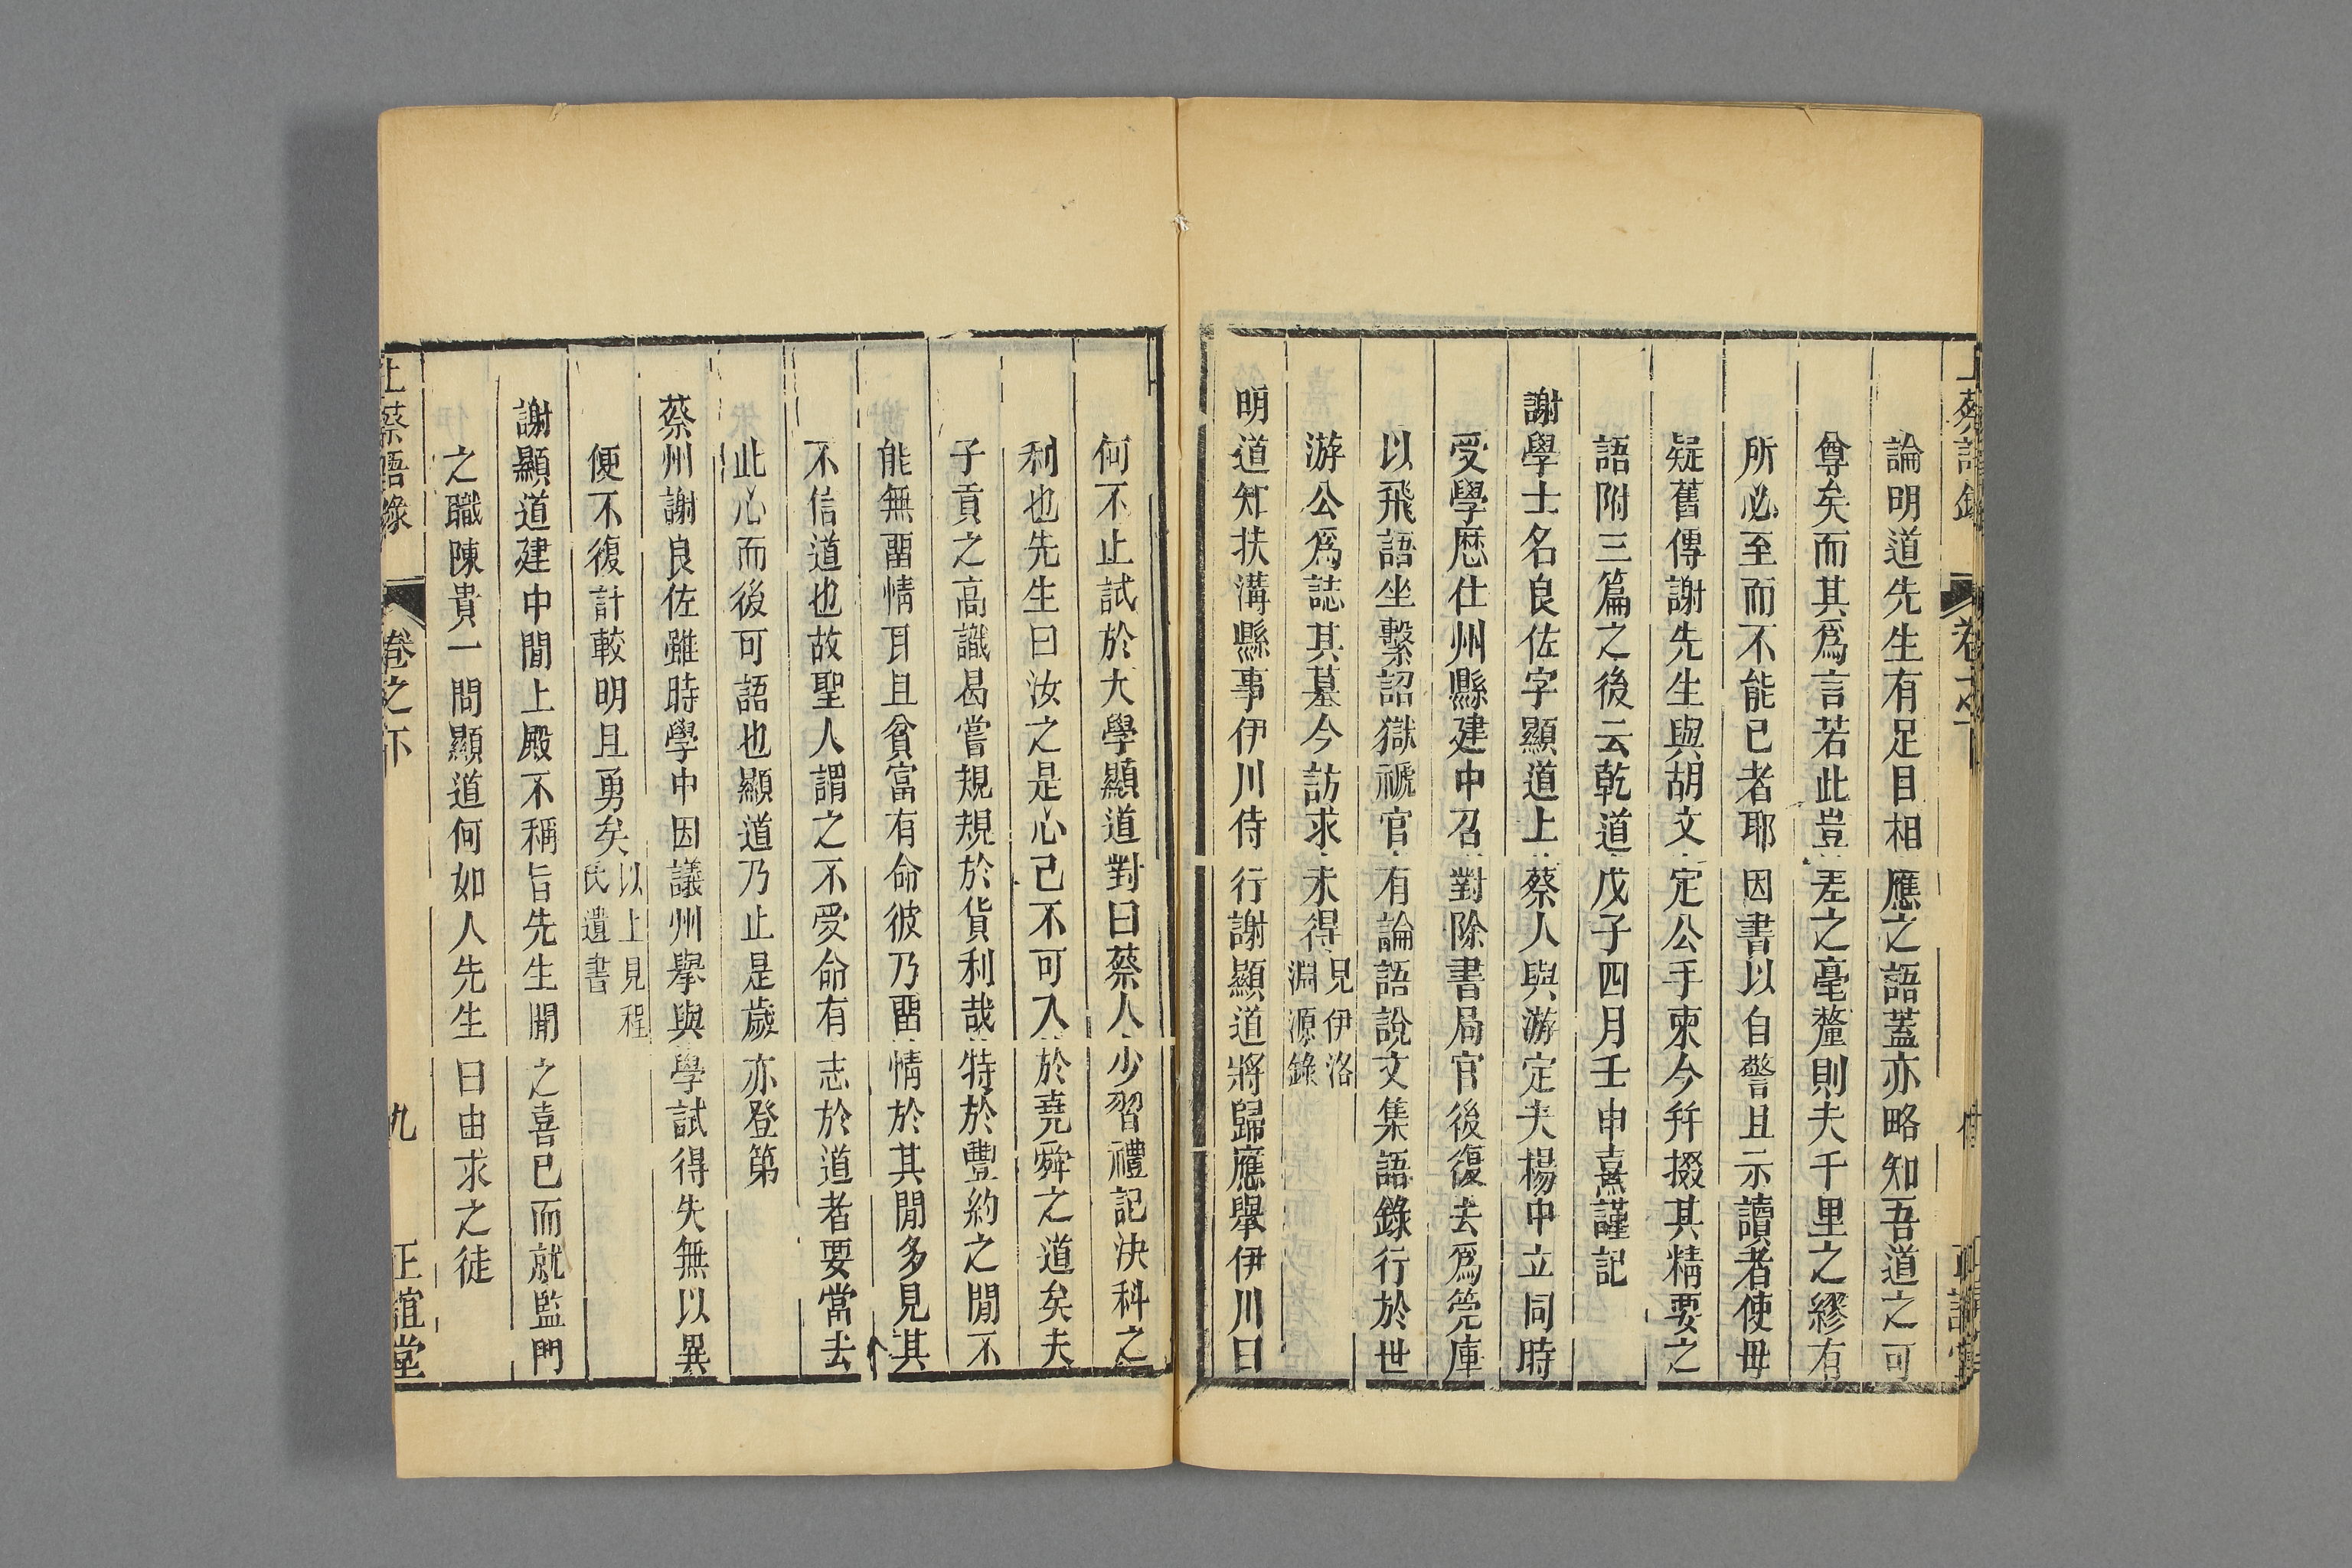 論明道先生有足目相應之語蓋亦略知吾道之可
尊矣而其爲言若此豈差之毫釐則夫千里之繆有
所必至而不能已者耶因書以自警且示讀者使毋
疑舊傳謝先生與胡文定公手柬今幷掇其精要之
語附三篇之後云乾道戊子四月壬申熹謹記
謝學士名良佐字顯道上蔡人與游定夫楊中立同時
受學歷仕州縣建中召對除書局官後復去爲筦庫
以飛語坐繫詔獄褫官有論語說文集語錄行於世
游公爲誌其墓今訪求未得見伊洛
淵源錄
明道知扶溝縣事伊川侍行謝顯道將歸應舉伊川曰
何不止試於大學顯道對曰蔡人少習禮記決科之
利也先生曰汝之是心己不可入於堯舜之道矣夫
子貢之高識曷嘗規規於貨利哉特於豐約之閒不
能無畱情耳且貧富有命彼乃畱情於其閒多見其
不信道也故聖人謂之不受命有志於道者要當去
此心而後可語也顯道乃止是歲亦登第
蔡州謝良佐雖時學中因議州舉與學試得失無以異
便不復計較明且勇矣以上見程
氏遺書
謝顯道建中閒上殿不稱旨先生聞之喜已而就監門
之職陳貴一問顯道何如人先生曰由求之徒
上蔡語錄
卷之下
九
正誼堂